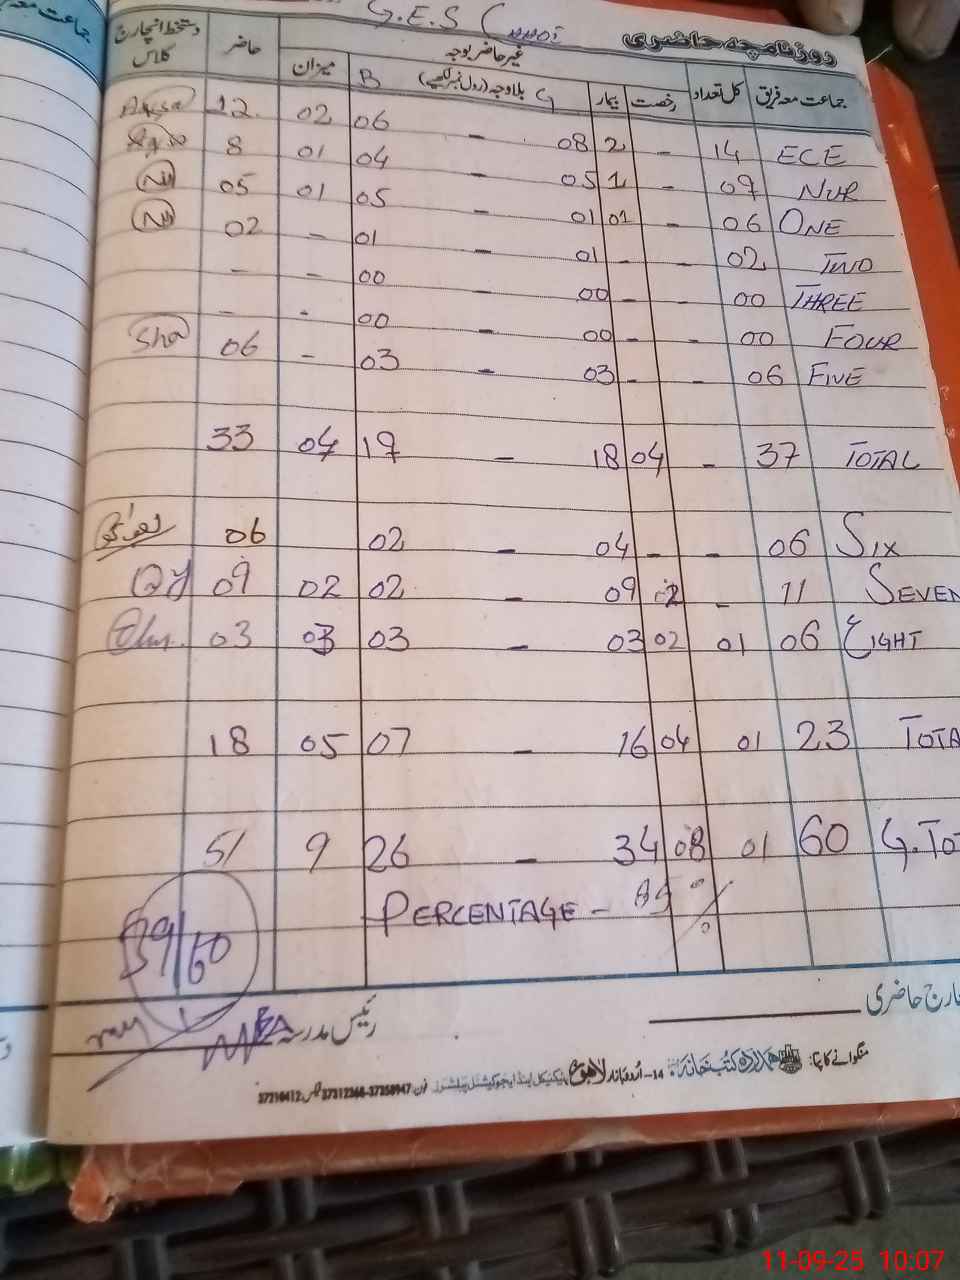 G.E.S (
روزنامچہ حاضری
جماعت معہ فریق کل تعداد رخصت بیمار غیر حاضر بوجہ بلاوجہ (رول نمبر لکھیے) میزان حاضر دستخط انچارج کلاس
B G
12 02 06 - 08 2 - 14 ECE
8 01 04 - 05 1 - 09 NUR
05 01 05 - 01 01 - 06 ONE
02 - 01 - 01 - - 02 TWO
- - 00 - 00 - - 00 THREE
- - 00 - 00 - - 00 FOUR
Sha 06 - 03 - 03 - - 06 FIVE
33 04 19 - 18 04 - 37 TOTAL
06 02 - 04 - - 06 SIX
09 02 02 - 09 2 - 11 SEVEN
03 03 03 - 03 02 01 06 EIGHT
18 05 07 - 16 04 01 23 TOTA
51 9 26 - 34 08 01 60 G.TOT
PERCENTAGE - 85 %
/60
رئیس مدرسہ
چارج حاضری
منگوانے کا پتا: ہمدرد کتب خانہ 14-اردو بازار لاہور
11-09-25 10:07